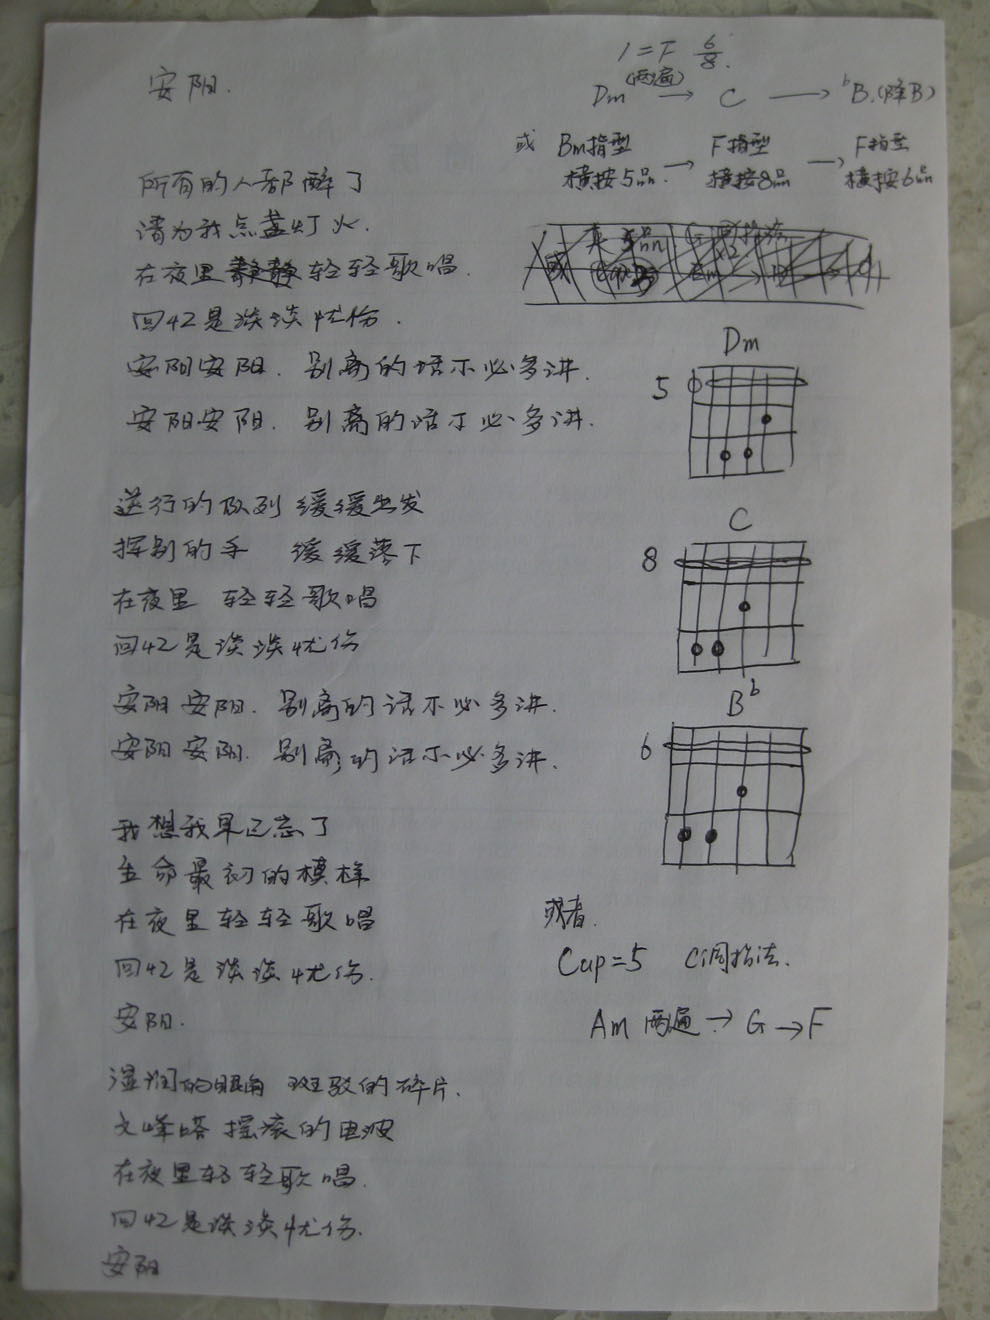 安阳.
1=F 6/8.
(两遍)
Dm → C → ᵇB.(降B)
或 Bm指型 → F指型 → F指型
横按5品. 横按8品 横按6品
所有的人都醉了
请为我点盏灯火.
在夜里 轻轻歌唱.
回忆是淡淡忧伤.
安阳安阳. 别离的话不必多讲.
安阳安阳. 别离的话不必多讲.
Dm
5
送行的队列 缓缓出发
挥别的手 缓缓落下
在夜里 轻轻歌唱
回忆是淡淡忧伤
安阳安阳. 别离的话不必多讲.
安阳安阳. 别离的话不必多讲.
C
8
Bᵇ
6
我想我早已忘了
生命最初的模样
在夜里轻轻歌唱
回忆是淡淡忧伤.
安阳.
或者.
Cap=5 C调指法.
Am 两遍 → G → F
湿润的眼角 斑驳的碎片.
文峰塔 摇滚的电波
在夜里轻轻歌唱.
回忆是淡淡忧伤.
安阳